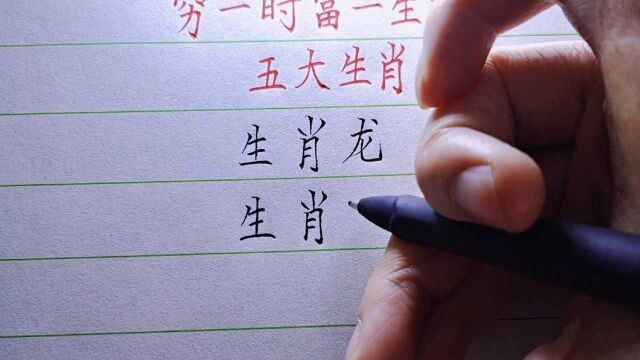 穷一时富一生
五大生肖
生肖龙
生肖